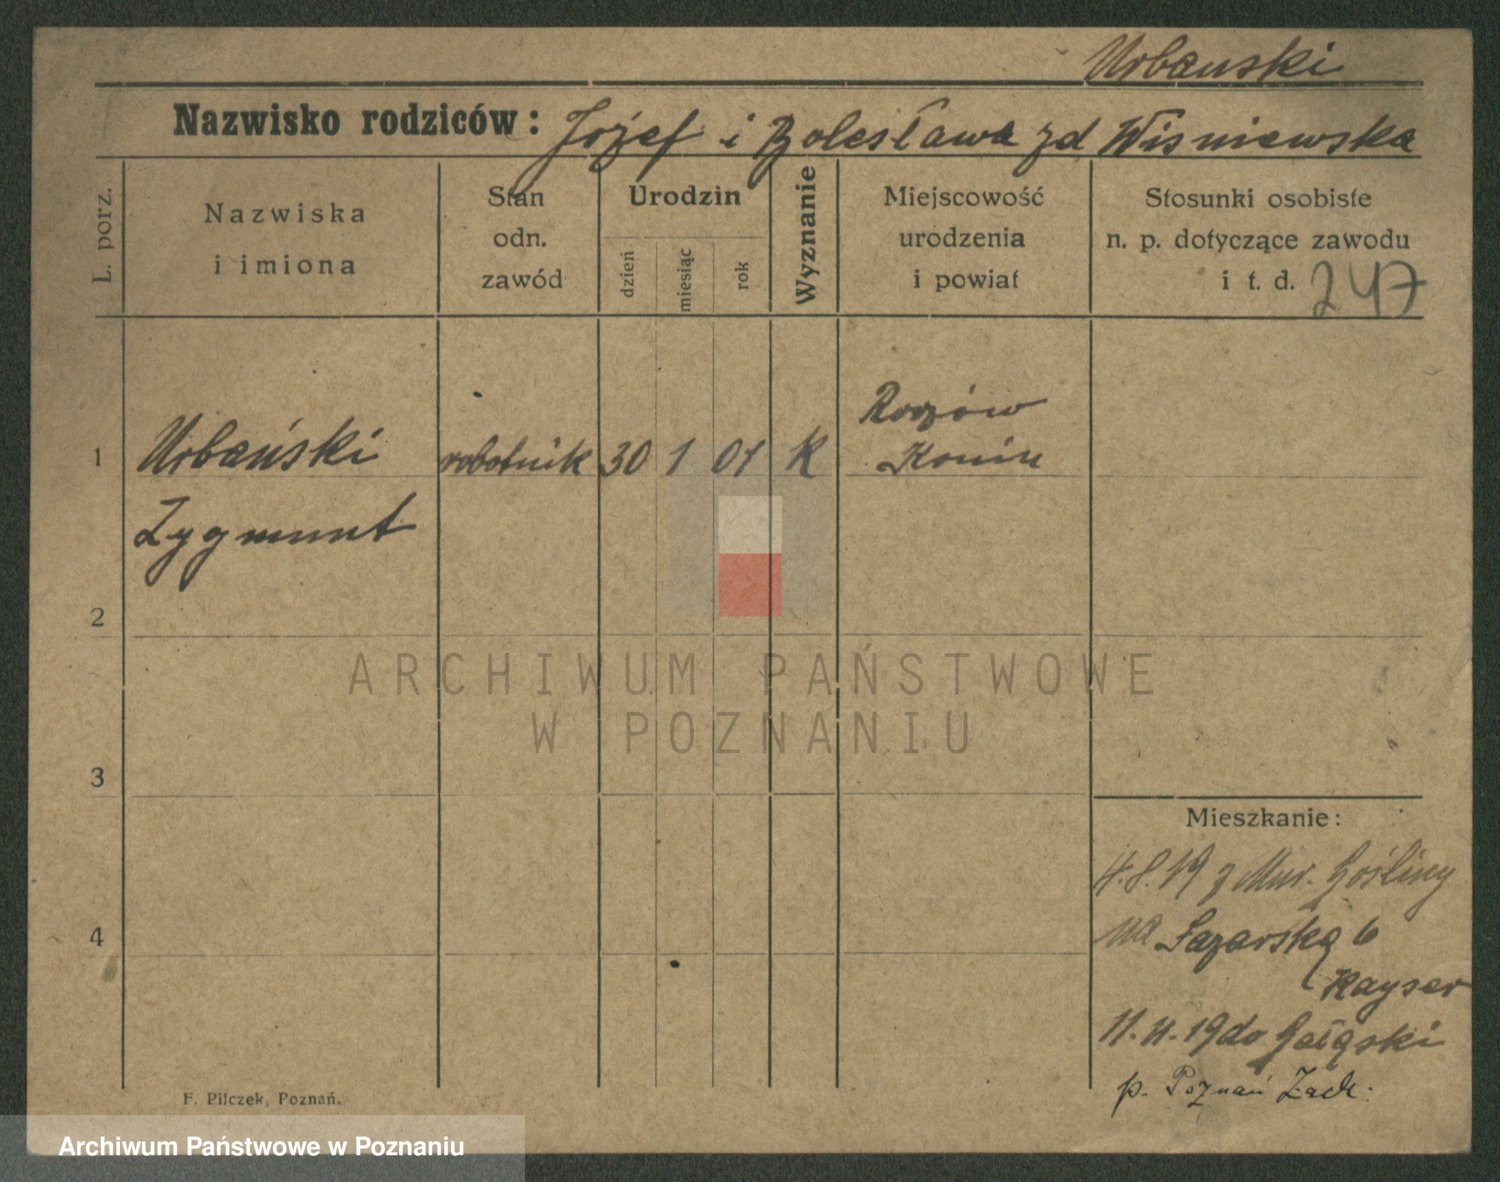 Urbanski
Nazwisko rodziców: Józef i Bolesława zd Wiśniewska
L. porz.
Nazwiska
i imiona
Stan
odn.
zawód
Urodzin
dzień
miesiąc
rok
Wyznanie
Miejscowość
urodzenia
i powiat
Stosunki osobiste
n. p. dotyczące zawodu
i t. d. 247
1 Urbański robotnik 30 1 01 K
Konin
Zygmunt
2
ARCHIWUM PAŃSTWOWE
W POZNANIU
3
Mieszkanie:
z Mur. Gośliny
4
na Łazarską 6
Kayser
11. 11. 19 do
p. Poznań Zach.
F. Pilczek, Poznań.
Archiwum Państwowe w Poznaniu